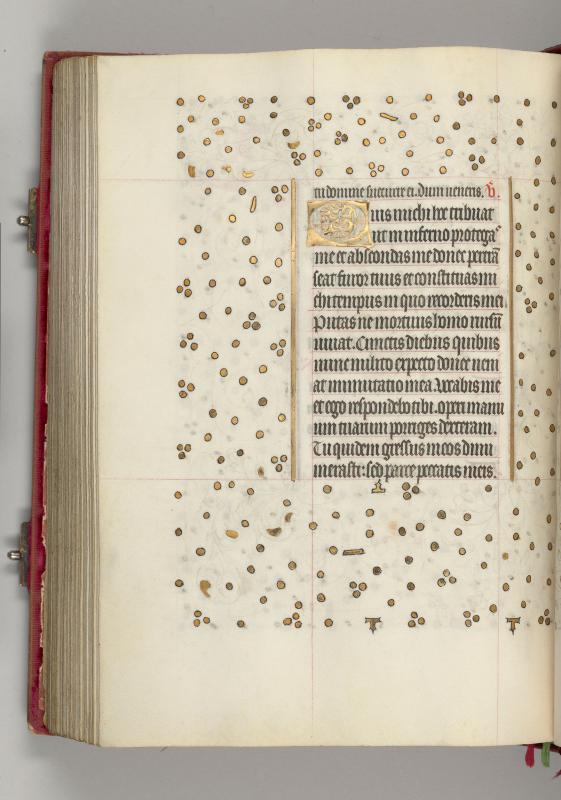 tu domine succurre ei. Dum veneris. V̄.
Quis michi hoc tribuat
ut in inferno protega
me et abscondas me donec pertrā
seat furor tuus et constituas mi
chi tempus in quo recorderis mei
Putas ne mortuus homo rursū
vivat. Cunctis diebus quibus
nunc milito expecto donec veni
at inmutatio mea Vocabis me
et ego respondebo tibi. operi manu
um tuarum porriges dexteram.
Tu quidem gressus meos dinu
merasti: sed parce peccatis meis.